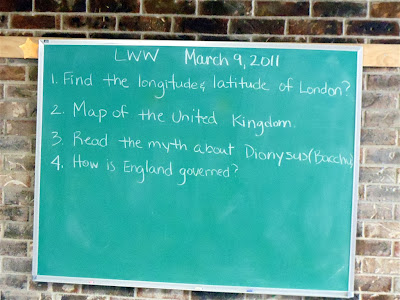 LWW March 9, 2011
1. Find the longitude & latitude of London?
2. Map of the United Kingdom.
3. Read the myth about Dionysus (Bacchus)
4. How is England governed?